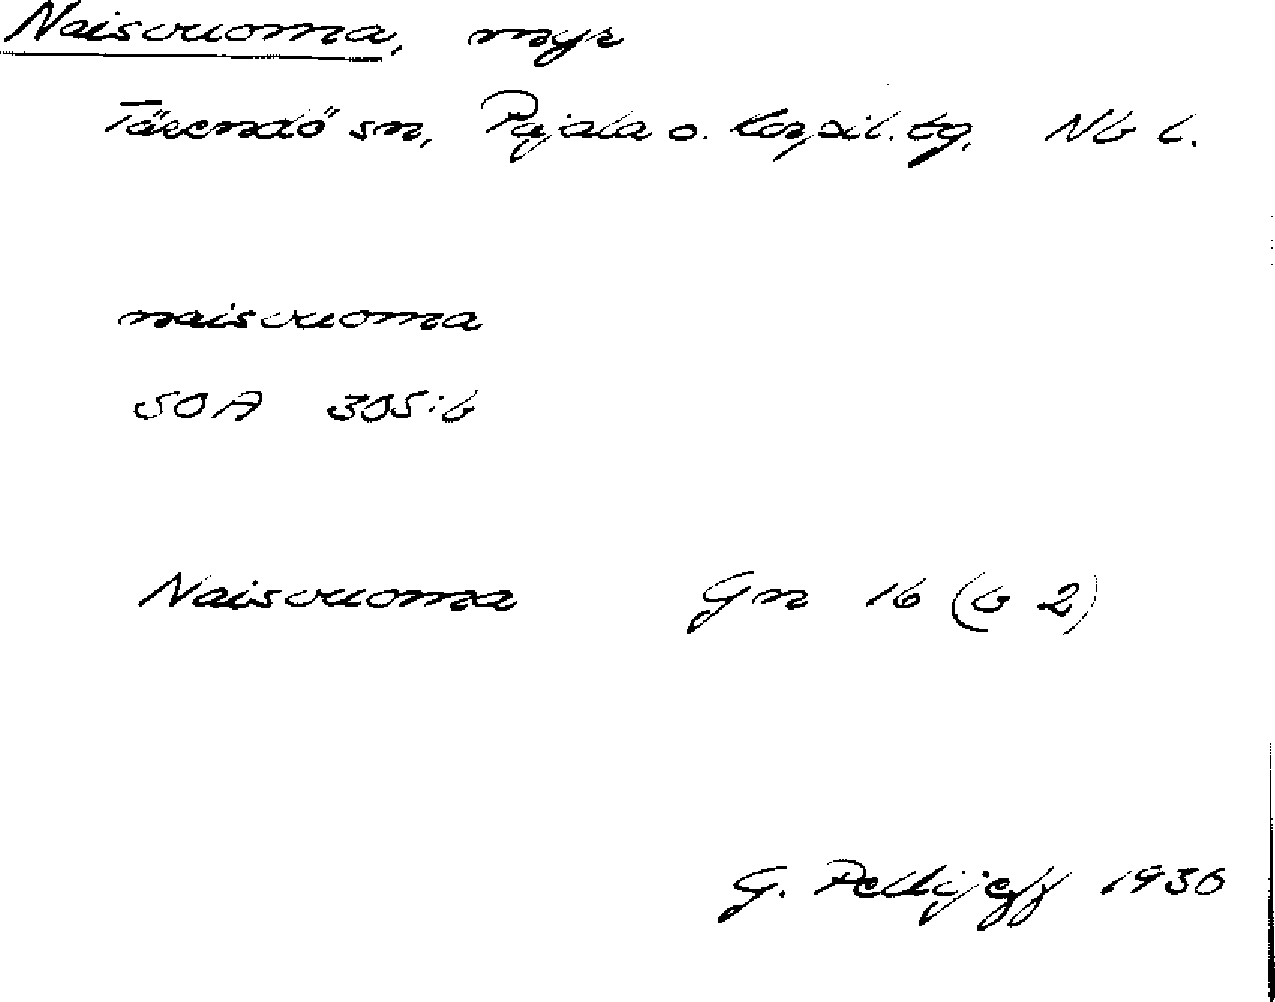 Naisvuoma, myr
Tärendö sn, Pajala o. Korpil. tg, Nb l.
naisvuoma
SOA 305:b
Naisvuoma Gn 16 (b 2)
G. Pellijeff 1936